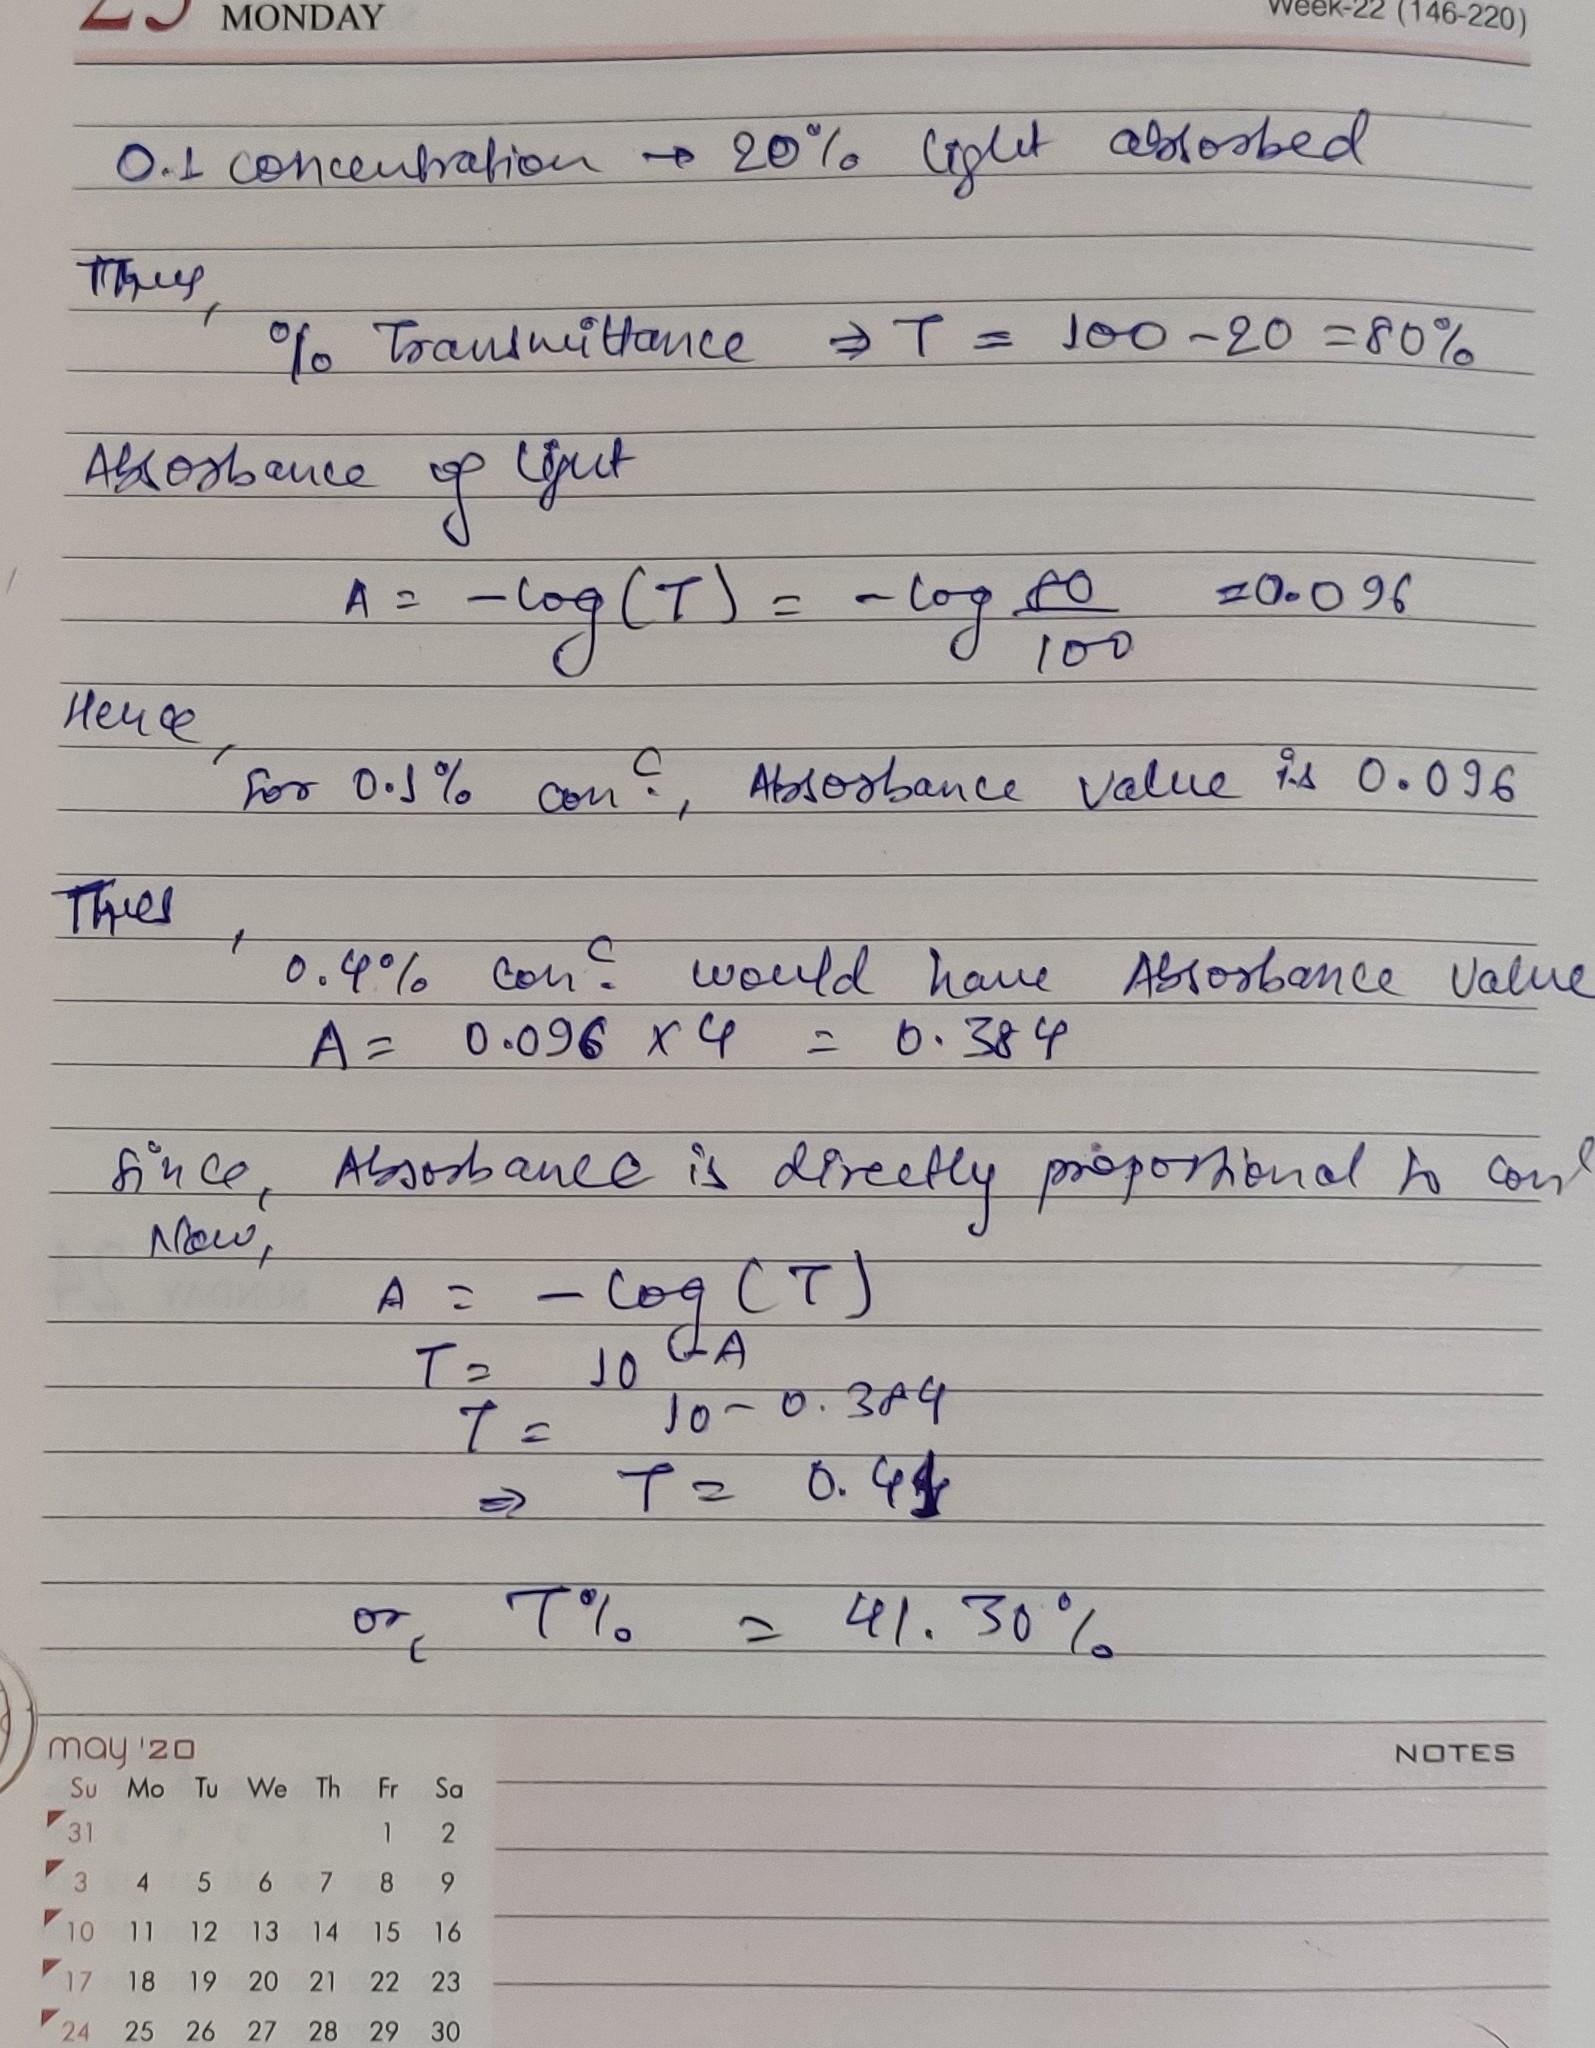 25 MONDAY Week-22 (146-220)
0.1 concentration → 20% light absorbed
Thus,
% Transmittance ⇒ T = 100 - 20 = 80%
Absorbance of light
A = -log(T) = -log 80/100 = 0.096
Hence,
for 0.1% conc., Absorbance value is 0.096
Thus,
0.4% conc. would have Absorbance value
A = 0.096 x 4 = 0.384
Since, Absorbance is directly proportional to conc
Now,
A = - log (T)
T = 10^(-A
T = 10 - 0.384
⇒ T = 0.41
or, T% = 41.30%
may '20
NOTES
Su Mo Tu We Th Fr Sa
31 1 2
3 4 5 6 7 8 9
10 11 12 13 14 15 16
17 18 19 20 21 22 23
24 25 26 27 28 29 30